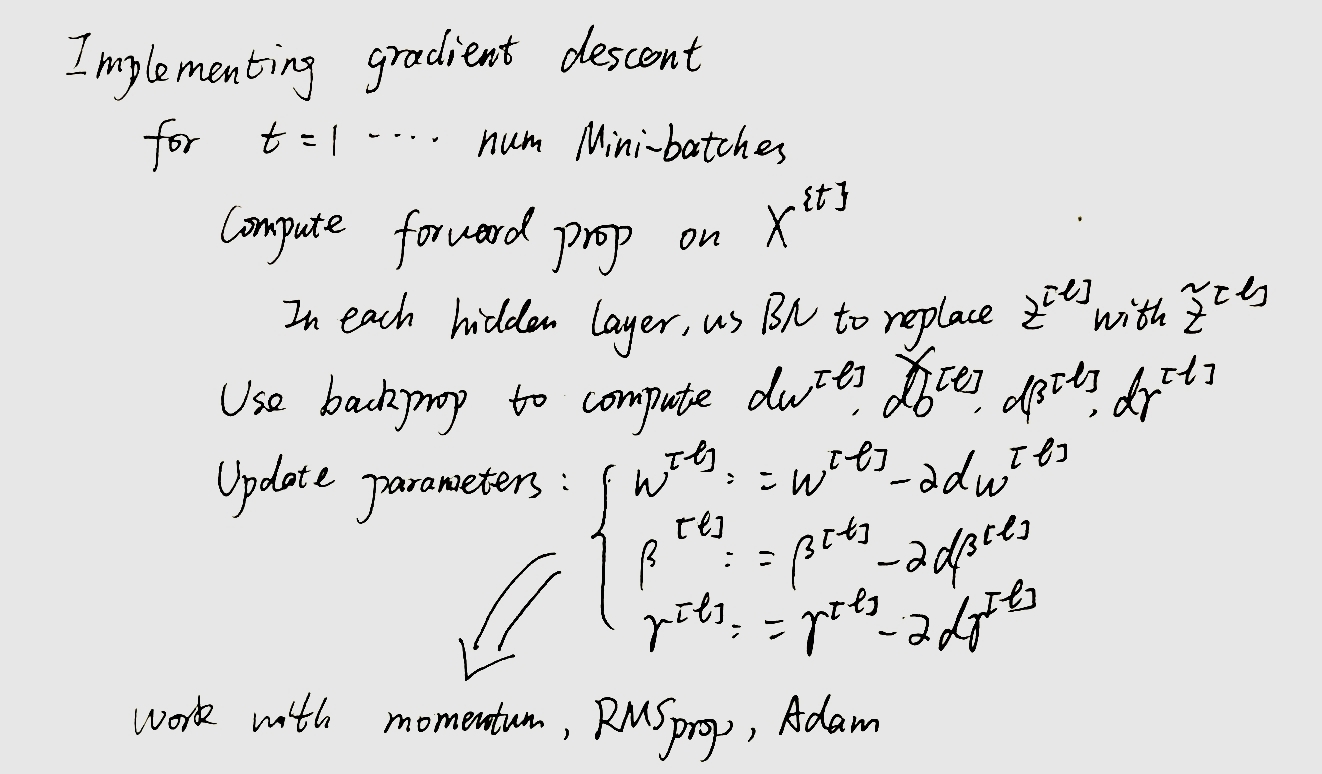 Implementing gradient descent
for t = 1 ···· num Mini-batches
Compute forward prop on X^{t}
In each hidden layer, us BN to replace z^[l] with z̃^[l]
Use backprop to compute dw^[l], db^[l], dβ^[l], dγ^[l]
Update parameters: { w^[l] := w^[l] - αdw^[l]
β^[l] := β^[l] - αdβ^[l]
γ^[l] := γ^[l] - αdγ^[l]
work with momentum, RMSprop, Adam